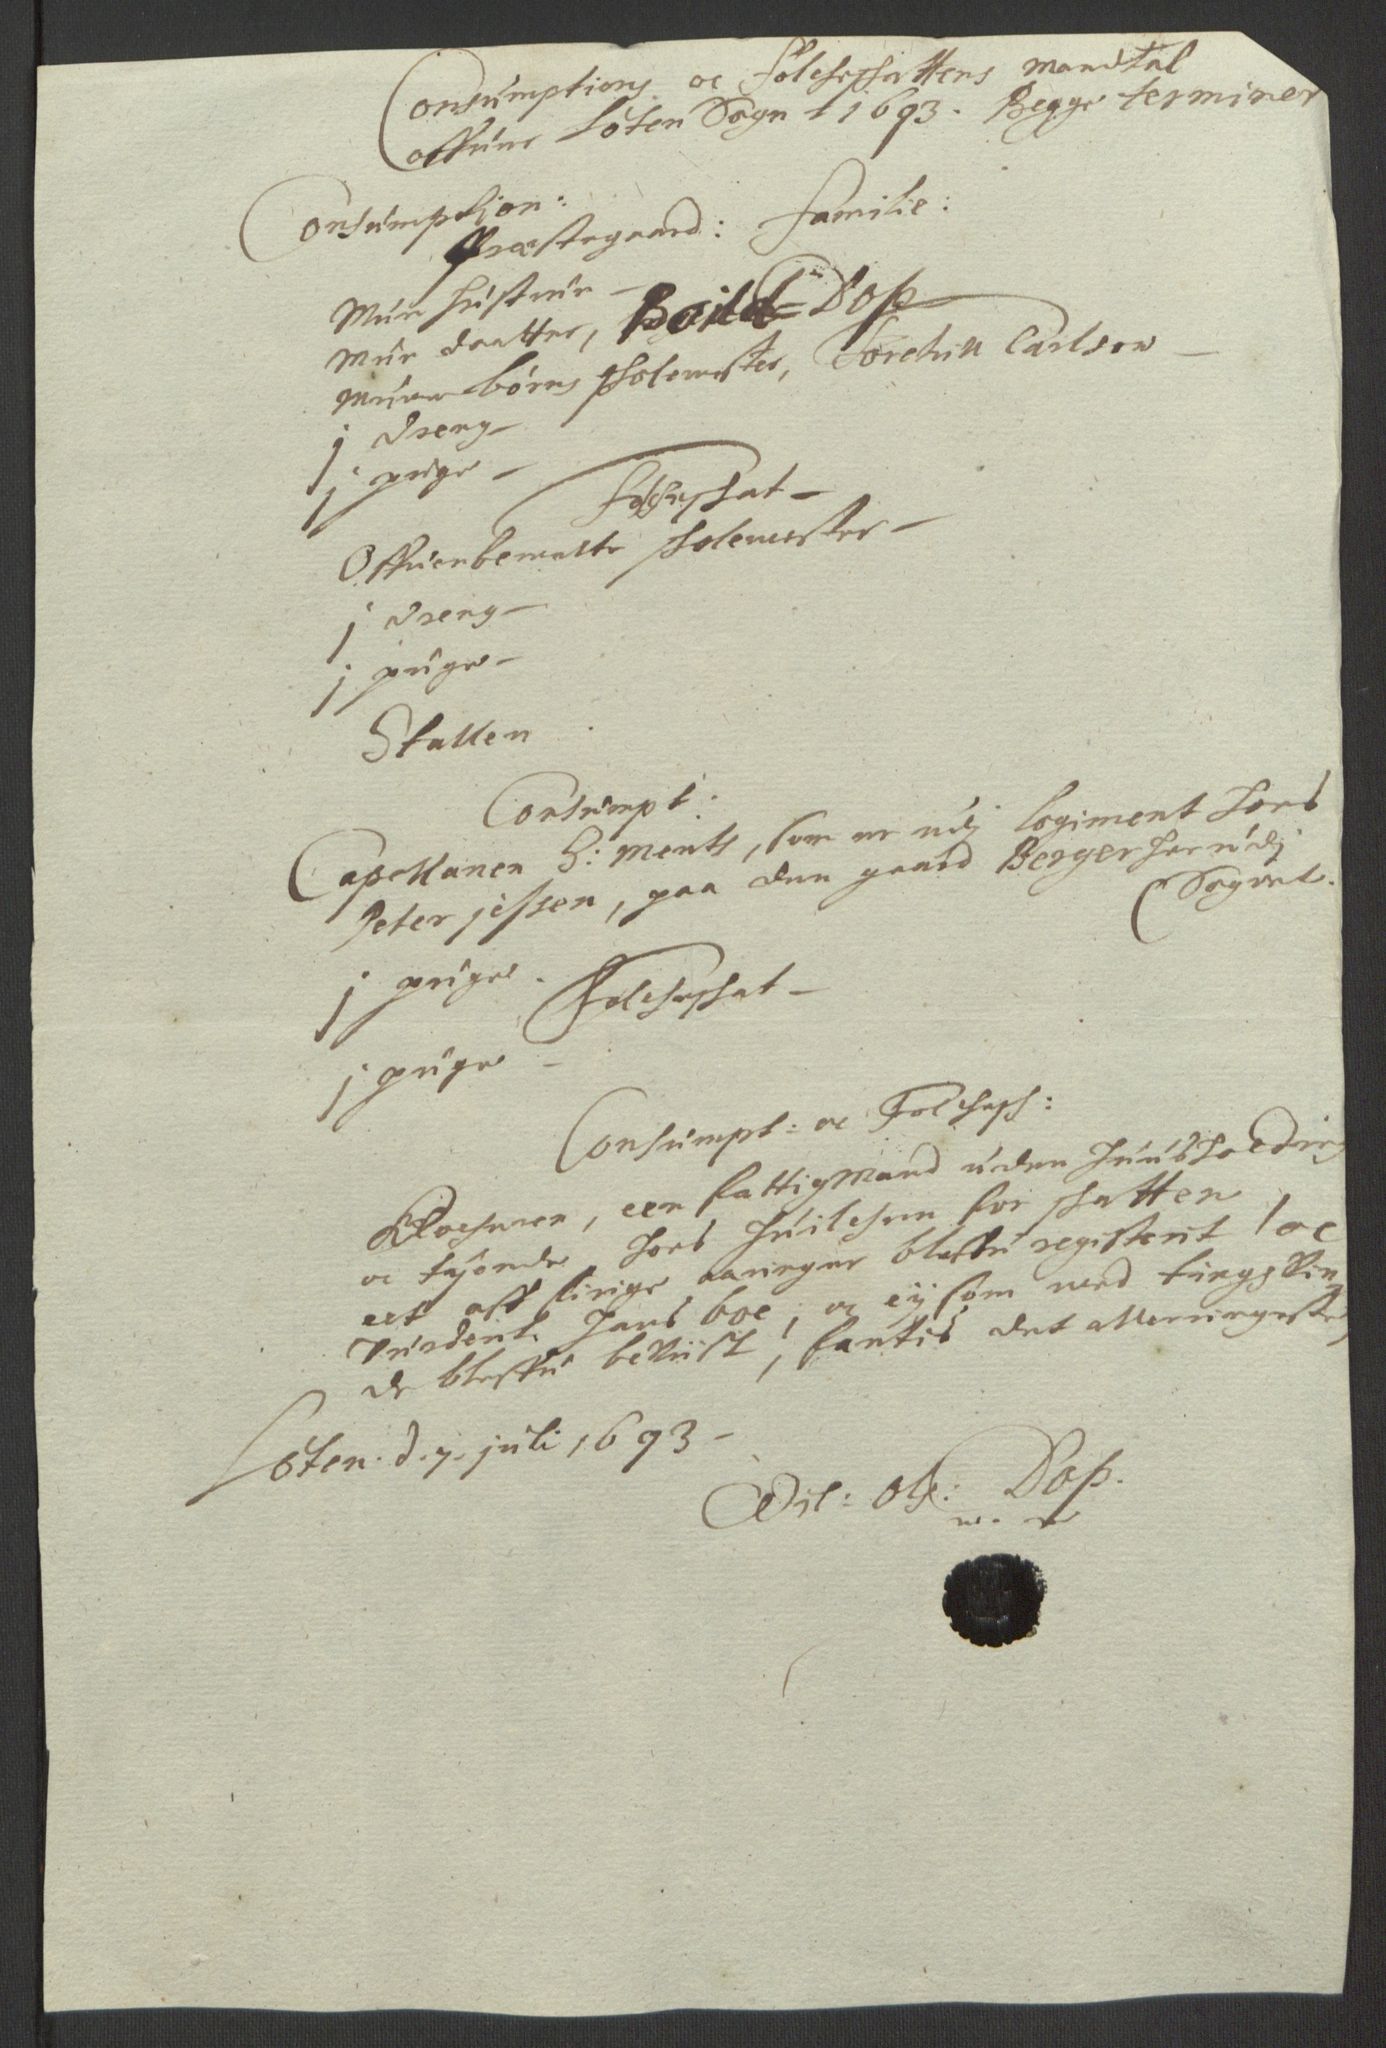 Consumptions oc Folcheschattens mandtal
offuer Løten Sogn 1693. Begge terminer
Consumption:
Præstegaard: Familie:
Min hustrue –
Min daatter, Bodild Dop
Mine børns scholemester, Torchill Carlson –
j dreng –
j pige –
Folcheschat –
Offuenbemelte scholemester –
j dreng –
j pige –
Stallen
Consumpt:
Capellanen H: Ments, som er udj logiment hoes
Peter jessen, paa den gaard Berger her udj
Sognet.
j pige.
Folcheschat –
j pige –
Consumpt: oc Folchesch:
Klocheren, een fattig Mand uden huusholding
oc tiende, hoes huilchen for schatten
ert aff forige aaringer bleffu registerit oc
vurderit hans boe, oc eÿ som med tings vin
de bleffu beviist, fantis det allerringeste,
Løten d. 7. juli 1693 –
Dop.